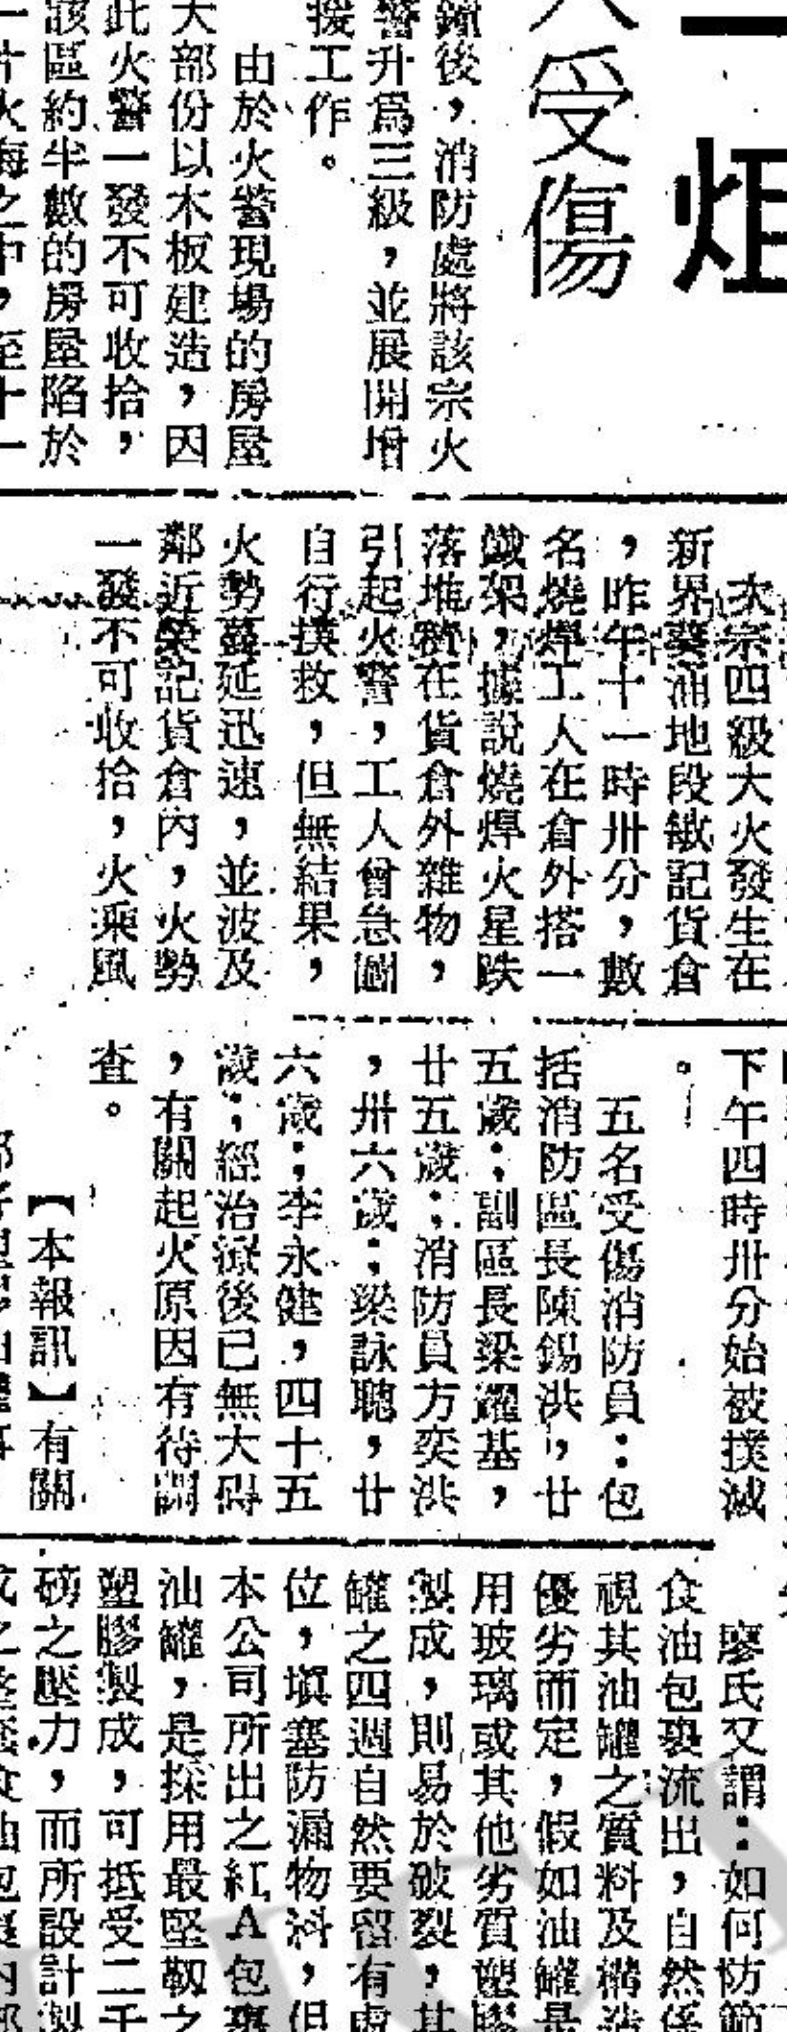 一炬
人受傷
鐘後，消防處將該宗火
警升爲三級，並展開增
援工作。
由於火警現場的房屋
大部份以木板建造，因
此火警一發不可收拾，
該區約半數的房屋陷於
一片火海之中，至十一
次宗四級大火發生在
新界葵涌地段敏記貨倉
，昨午十一時卅分，數
名燒焊工人在倉外搭一
鐵架，據說燒焊火星跌
落堆積在貨倉外雜物，
引起火警，工人曾急圖
自行撲救，但無結果，
火勢蔓延迅速，並波及
鄰近榮記貨倉內，火勢
一發不可收拾，火乘風
下午四時卅分始被撲滅
。
五名受傷消防員：包
括消防區長陳錫洪，廿
五歲；副區長梁耀基，
廿五歲；消防員方奕洪
，卅六歲；梁詠聰，廿
六歲；李永健，四十五
歲；經治療後已無大碍
，有關起火原因有待調
查。
【本報訊】有關
廖氏又謂：如何防範
食油包裹流出，自然係
視其油罐之質料及構造
優劣而定，假如油罐是
用玻璃或其他劣質塑膠
製成，則易於破裂，其
罐之四週自然要留有虛
位，填塞防漏物料，但
本公司所出之紅A包裹
油罐，是採用最堅韌之
塑膠製成，可抵受二千
磅之壓力，而所設計製